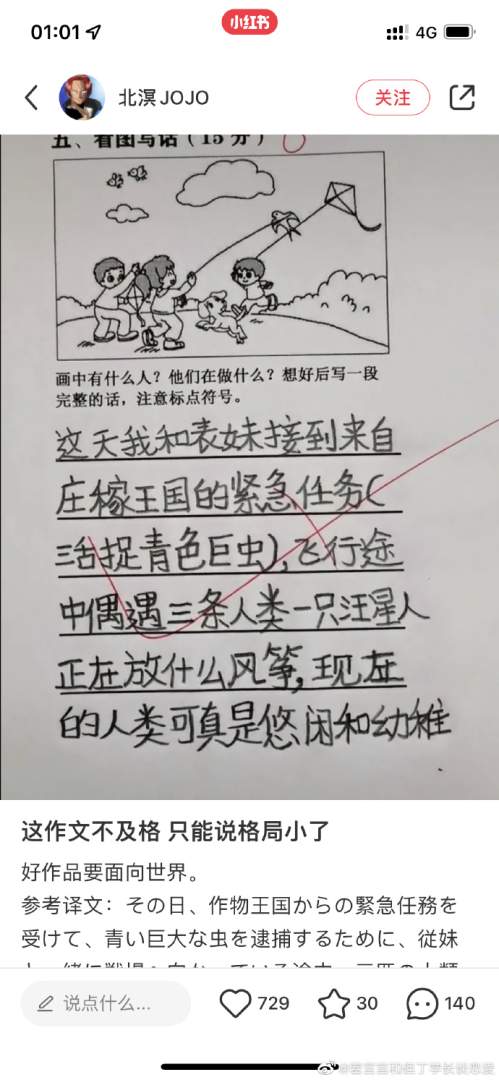 01:01
小红书
4G
北溟JOJO
关注
五、看图写话（15分）
画中有什么人？他们在做什么？想好后写一段
完整的话，注意标点符号。
这天我和表妹接到来自
庄稼王国的紧急任务(
活捉青色巨虫),飞行途
中偶遇三条人类一只汪星人
正在放什么风筝,现在
的人类可真是悠闲和幼稚
这作文不及格 只能说格局小了
好作品要面向世界。
参考译文：その日、作物王国からの緊急任務を
受けて、青い巨大な虫を逮捕するために、従妹
说点什么...
729
30
140